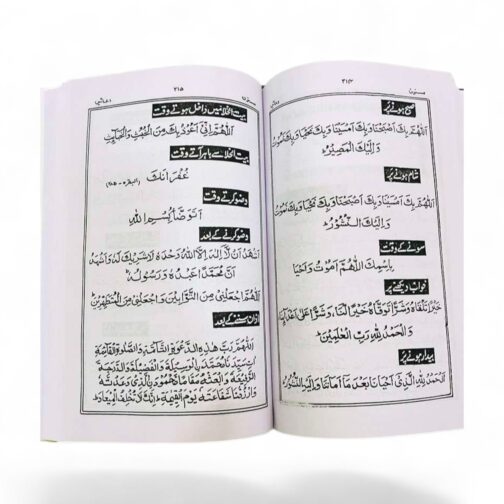 مسنون ۳۱۴ دعائیں
صبح ہونے پر
اَللّٰهُمَّ بِكَ اَصْبَحْنَا وَبِكَ اَمْسَيْنَا وَبِكَ نَحْيَا وَبِكَ نَمُوْتُ
وَاِلَيْكَ الْمَصِيْرُ
شام ہونے پر
اَللّٰهُمَّ بِكَ اَمْسَيْنَا وَبِكَ اَصْبَحْنَا وَبِكَ نَحْيَا وَبِكَ نَمُوْتُ
وَاِلَيْكَ النُّشُوْرُ
سونے کے وقت
بِاسْمِكَ اللّٰهُمَّ اَمُوْتُ وَاَحْيَا
خواب دیکھنے پر
خَيْرًا تَلَقَّاهُ وَشَرًّا تَوَقَّاهُ خَيْرًا لَّنَا، وَشَرًّا عَلٰى اَعْدَآئِنَا
وَالْحَمْدُ لِلّٰهِ رَبِّ الْعٰلَمِيْنَ
بیدار ہونے پر
اَلْحَمْدُ لِلّٰهِ الَّذِيْٓ اَحْيَانَا بَعْدَ مَا اَمَاتَنَا وَاِلَيْهِ النُّشُوْرُ
مسنون ۳۱۵ دعائیں
بیت الخلا میں داخل ہوتے وقت
اَللّٰهُمَّ اِنِّيْٓ اَعُوْذُ بِكَ مِنَ الْخُبُثِ وَالْخَبَآئِثِ
بیت الخلا سے باہر آتے وقت
غُفْرَانَكَ (البقرہ - ۲۸۵)
وضو کرتے وقت
اَتَوَضَّأُ بِسْمِ اللّٰهِ
وضو کرنے کے بعد
اَشْهَدُ اَنْ لَّآ اِلٰهَ اِلَّا اللّٰهُ وَحْدَهٗ لَا شَرِيْكَ لَهٗ وَاَشْهَدُ
اَنَّ مُحَمَّدًا عَبْدُهٗ وَرَسُوْلُهٗ
اَللّٰهُمَّ اجْعَلْنِيْ مِنَ التَّوَّابِيْنَ وَاجْعَلْنِيْ مِنَ الْمُتَطَهِّرِيْنَ
اذان سننے کے بعد
اَللّٰهُمَّ رَبَّ هٰذِهِ الدَّعْوَةِ التَّآمَّةِ وَالصَّلٰوةِ الْقَآئِمَةِ
اٰتِ سَيِّدَنَا مُحَمَّدَ اِلْوَسِيْلَةَ وَالْفَضِيْلَةَ وَالدَّرَجَةَ
الرَّفِيْعَةَ وَابْعَثْهُ مَقَامًا مَّحْمُوْدَ اِلَّذِيْ وَعَدْتَّهٗ
وَارْزُقْنَا شَفَاعَتَهٗ يَوْمَ الْقِيٰمَةِ اِنَّكَ لَا تُخْلِفُ الْمِيْعَادَ